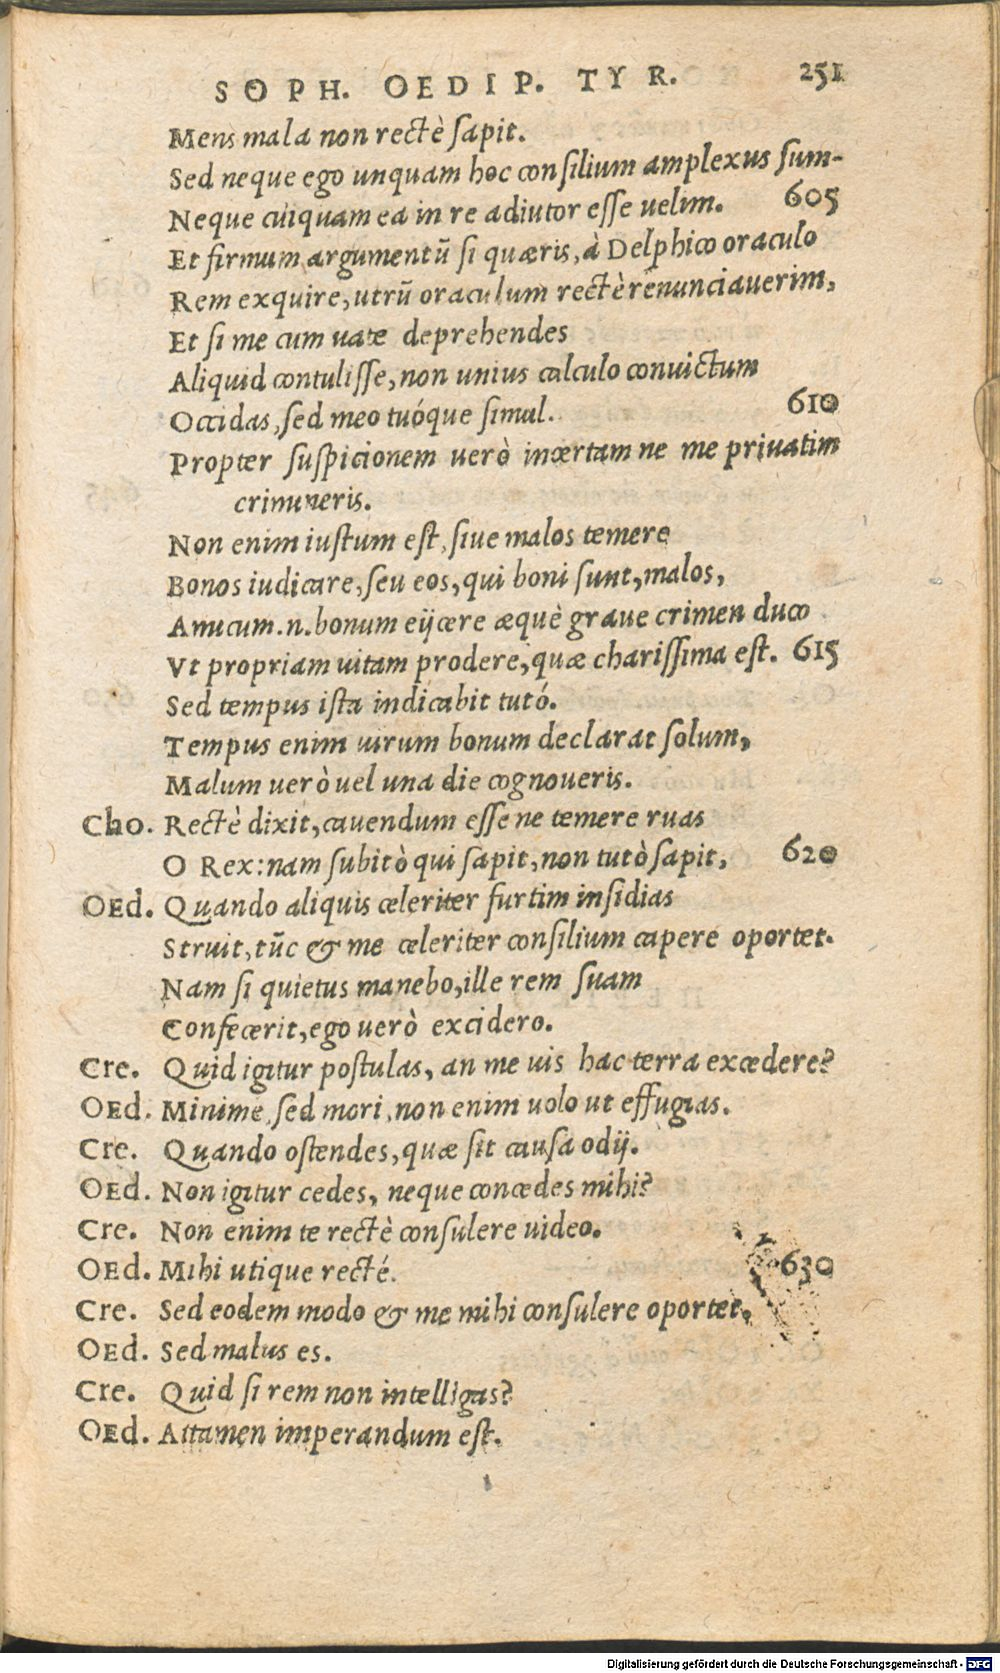 SOPH. OEDIP. TYR. 251
Mens mala non rectè sapit.
Sed neque ego unquam hoc consilium amplexus sum-
Neque cuiquam ea in re adiutor esse uelim. 605
Et firmum argumentũ si quæris, à Delphico oraculo
Rem exquire, utrũ oraculum rectè renunciauerim,
Et si me cum uate deprehendes
Aliquid contulisse, non unius calculo conuictum
Occidas, sed meo tuóque simul. 610
Propter suspicionem uerò incertam ne me priuatim
crimineris.
Non enim iustum est, siue malos temere
Bonos iudicare, seu eos, qui boni sunt, malos,
Amicum .n. bonum eijcere æquè graue crimen duco
Vt propriam uitam prodere, quæ charissima est. 615
Sed tempus ista indicabit tutó.
Tempus enim uirum bonum declarat solum,
Malum uerò uel una die cognoueris.
Cho. Rectè dixit, cauendum esse ne temere ruas
O Rex: nam subitò qui sapit, non tutò sapit, 620
OEd. Quando aliquis celeriter furtim insidias
Struit, tũc & me celeriter consilium capere oportet.
Nam si quietus manebo, ille rem suam
Confecerit, ego uerò excidero.
Cre. Quid igitur postulas, an me uis hac terra excedere?
OEd. Minime, sed mori, non enim uolo ut effugias.
Cre. Quando ostendes, quæ sit causa odij.
OEd. Non igitur cedes, neque concedes mihi?
Cre. Non enim te rectè consulere uideo.
OEd. Mihi utique recté. 630
Cre. Sed eodem modo & me mihi consulere oportet,
OEd. Sed malus es.
Cre. Quid si rem non intelligas?
OEd. Attamen imperandum est.
Digitalisierung gefördert durch die Deutsche Forschungsgemeinschaft - DFG